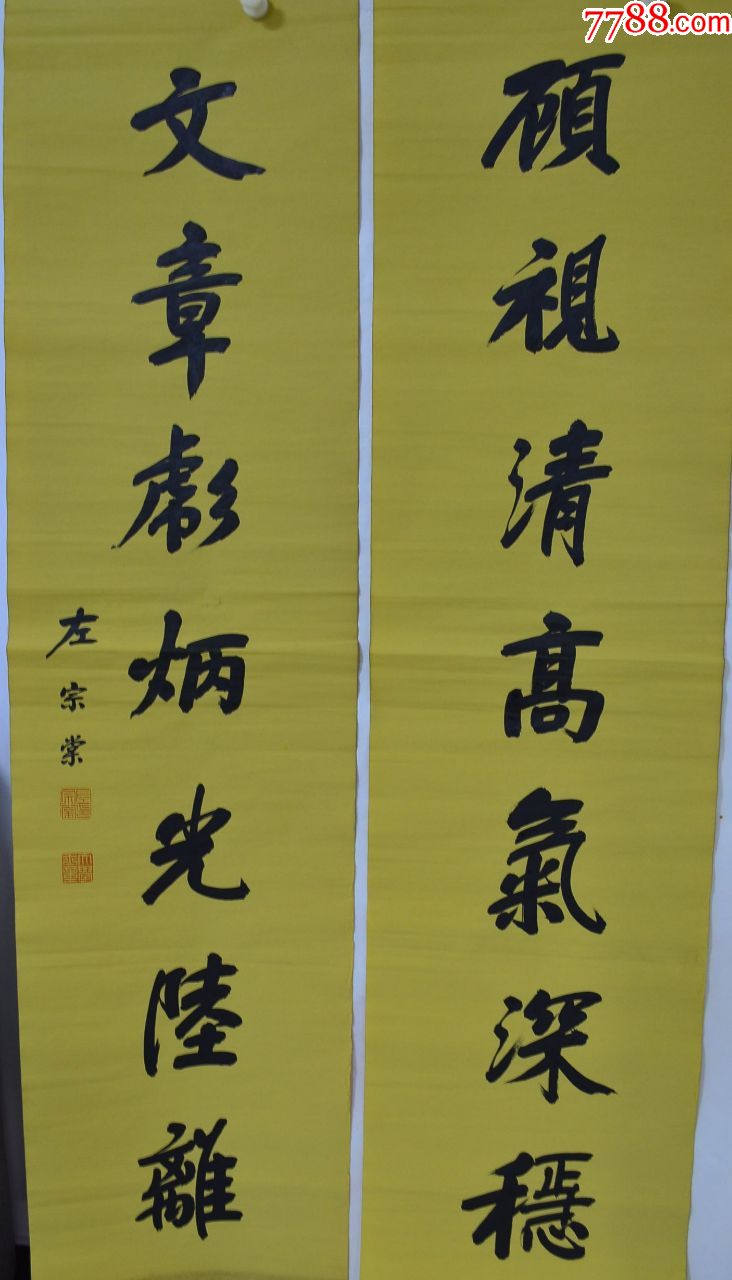 7788.com
顧視清髙氣深穩
文章彪炳光陸離
左宗棠